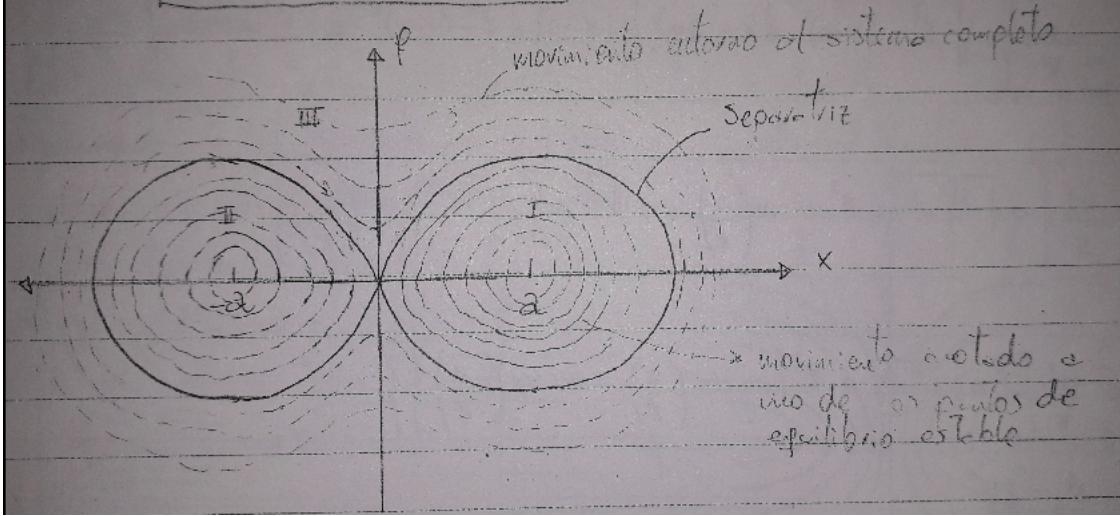 p
movimiento entorno al sistema completo
III
Separatriz
II
I
x
-a
a
* movimiento acotado a
uno de os puntos de
equilibrio estable